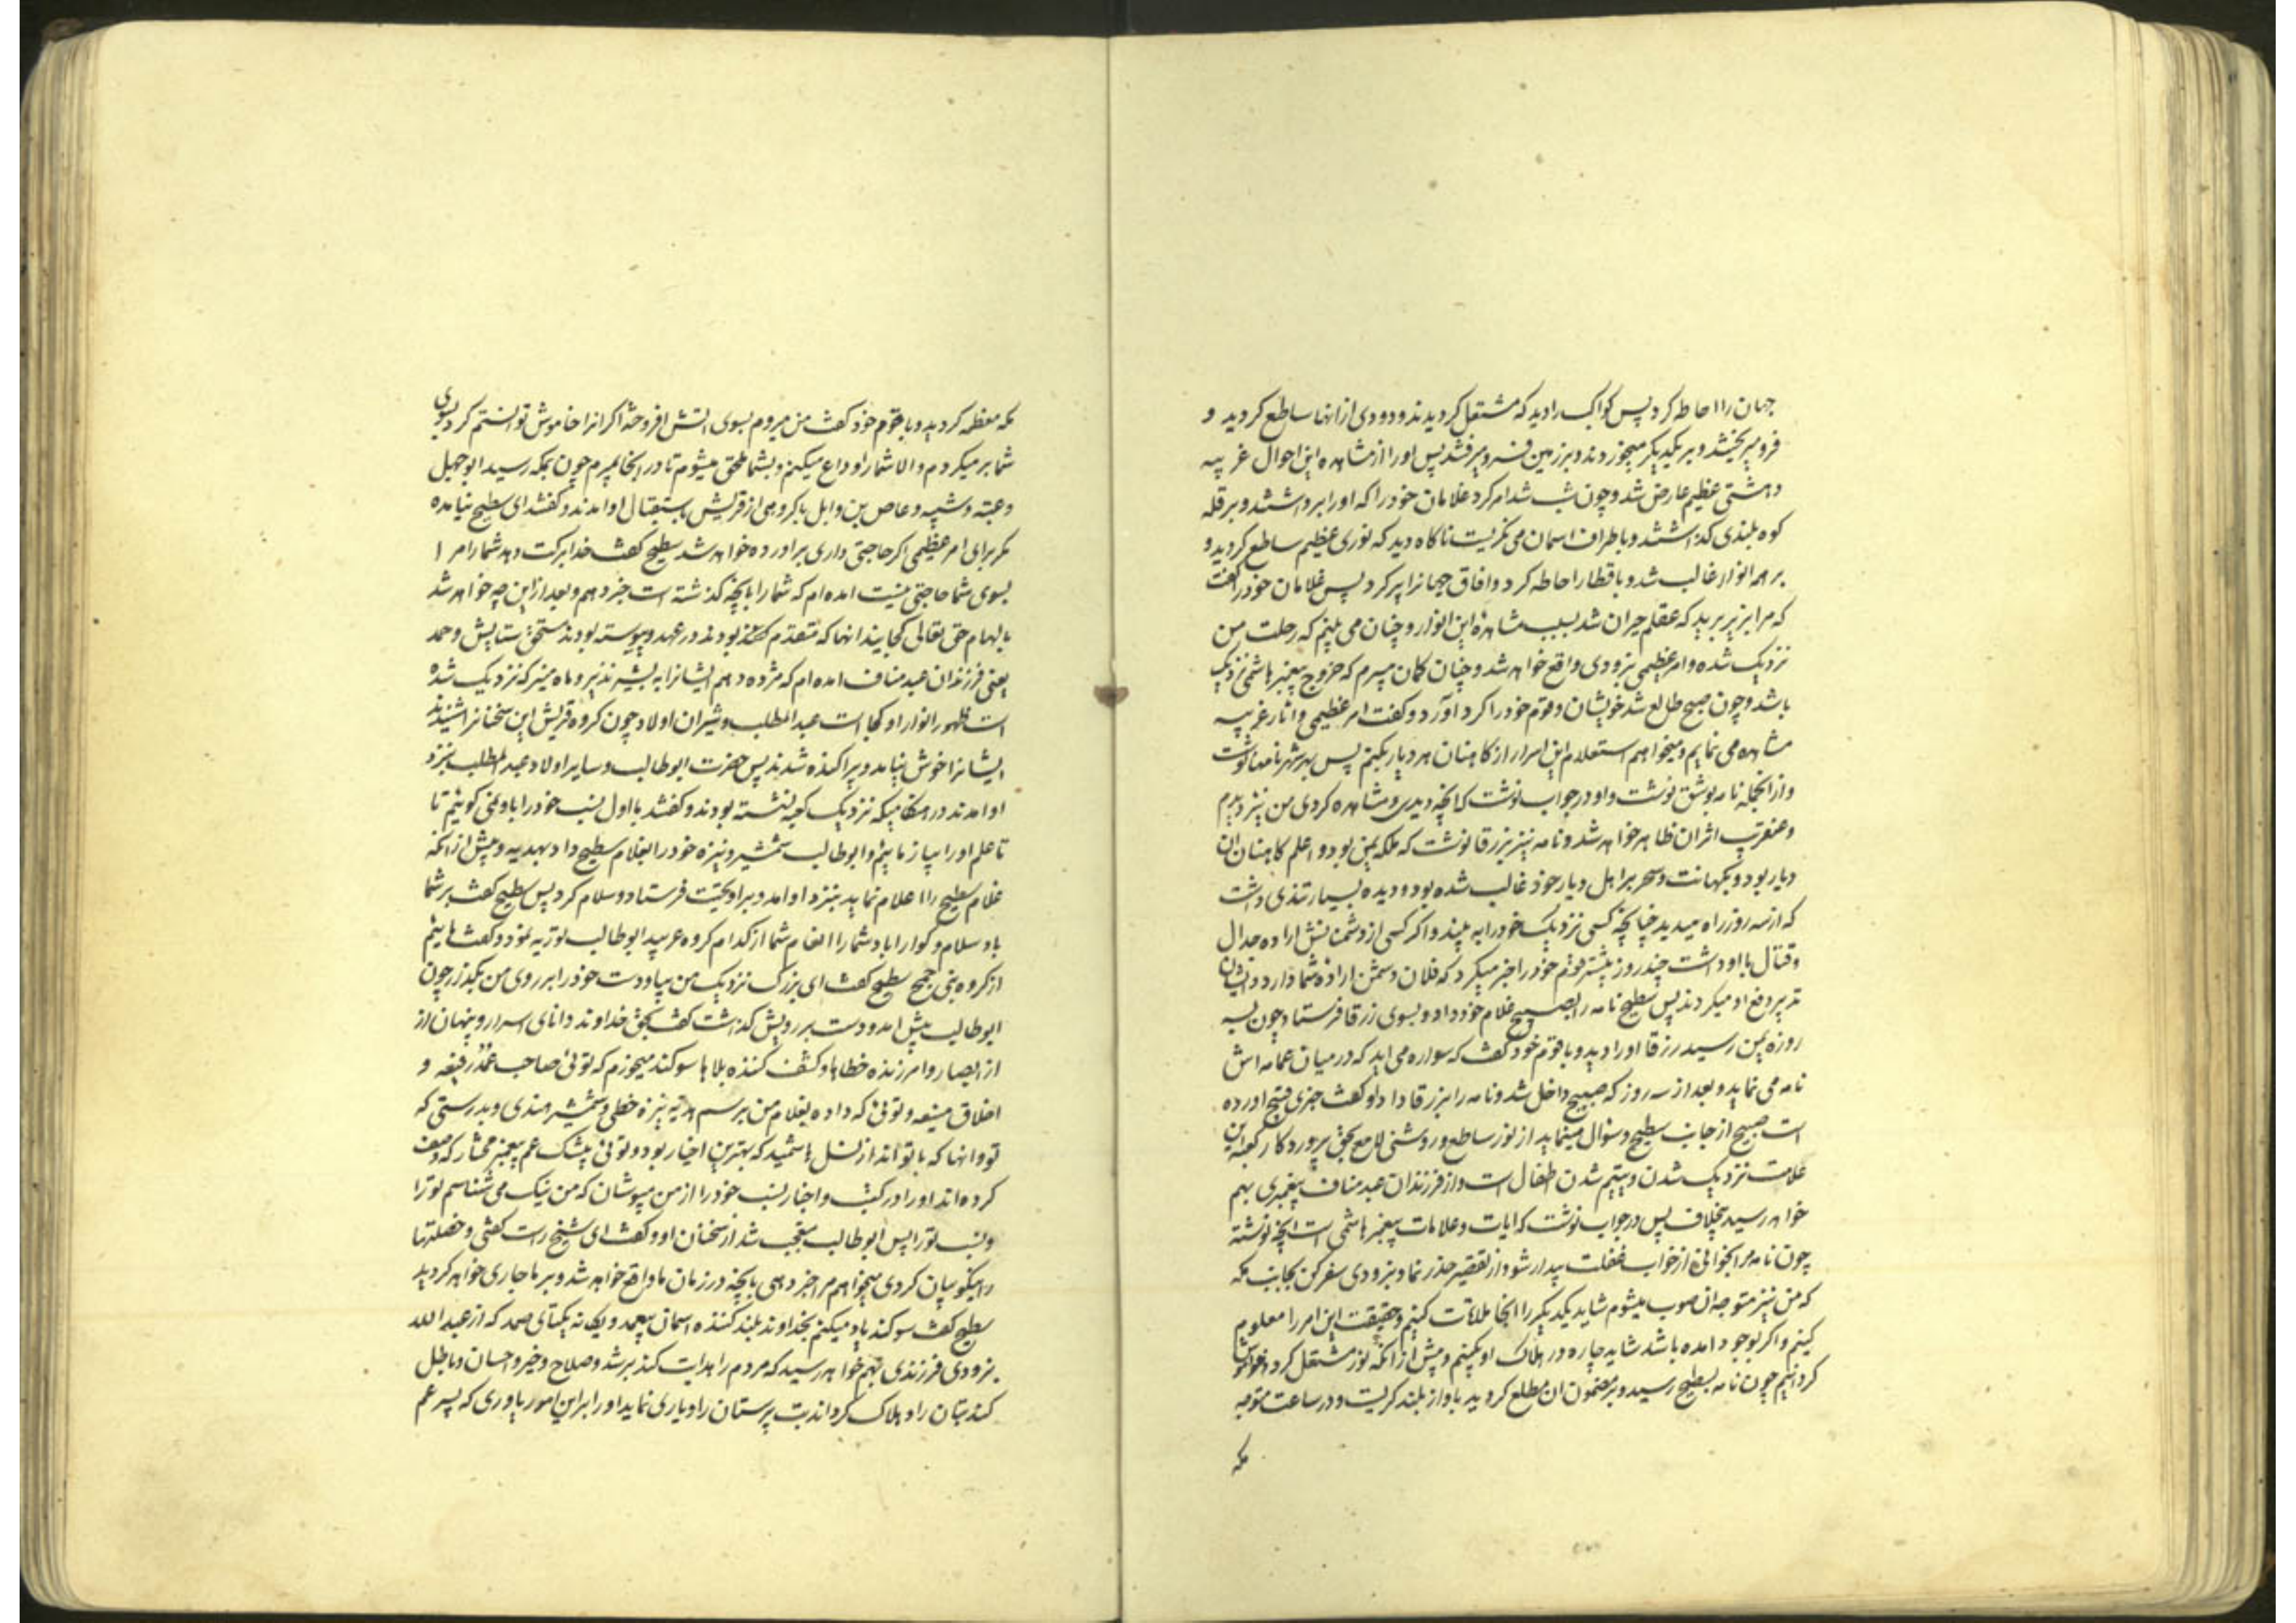 جهان را احاطه کرد پس کواکب را دید که مشتعل کردیدند و دودی از انها ساطع کردید و
فرو میریختند و بر یکدیکر میخوردند و بر زمین فرو میرفتند پس او را از مشاهده این احوال غریبه
دهشتی عظیم عارض شد و چون شب شد امر کرد غلامان خود را که او را برداشتند و بر قله
کوه بلندی کذاشتند و باطراف اسمان می نکریست ناکاه دید که نوری عظیم ساطع کردید و
بر همه انوار غالب شد و باقطار احاطه کرد و افاق جهانرا پر کرد پس غلامان خود را کفت
که مرا بزیر برید که عقلم حیران شد بسبب مشاهده این انوار و چنان می بینم که رحلت من
نزدیک شده و امر عظیمی بزودی واقع خواهد شد و چنان کمان میبرم که خروج پیغمبر هاشمی نزدیک
باشد و چون صبح طالع شد خویشان و قوم خود را کرد آورد و کفت امر عظیمی و اثار غریبه
مشاهده می نمایم و میخواهم استعلام این امر از کاهنان هر دیار بکنم پس بهر شهر نامها نوشت
و از انجمله نامه بوشق نوشت و او در جواب نوشت که انچه دیدی و مشاهده کردی من نیز دیدم
و عنقریب اثر ان ظاهر خواهد شد و نامه نیز بزرقا نوشت که ملکه یمن بود و اعلم کاهنان ان
دیار بود و بکهانت و سحر بر اهل دیار خود غالب شده بود و دیده بسیار تندی داشت
که از سه روزه راه میدید چنانچه کسی نزدیک خود را به بیند و اکر کسی از دشمنانش اراده جدال
و قتال با او داشت چند روز پیشتر قوم خود را خبر میکرد که فلان دشمن اراده شما دارد و ایشان
تدبیر دفع او میکردند پس سطیح نامه را بصبیح غلام خود داد و بسوی زرقا فرستاد چون بسه
روزه یمن رسید زرقا او را دید و با قوم خود کفت که سواره می اید که در میان عمامه اش
نامه می نماید و بعد از سه روز که صبیح داخل شد و نامه را بزرقا داد او کفت خبری قبیح اورده
است صبیح از جانب سطیح و سؤال مینماید از نور ساطع و روشنی لامع بحق پروردکار کعبه این
علامت نزدیک شدن و یتیم شدن اطفال است و از فرزندان عبد مناف پیغمبری بهم
خواهد رسید بیخلاف پس در جواب نوشت که ایات و علامات پیغمبر هاشمی است انچه نوشته
چون نامه مرا بخوانی از خواب غفلت بیدار شو و از تقصیر حذر نما و بزودی سفر کن بجانب مکه
که من نیز متوجه ان صوب میشوم شاید یکدیکر را انجا ملاقات کنیم و حقیقت این امر را معلوم
کنیم و اکر بوجود امده باشد شاید چاره در هلاک او بکنیم و پیش از انکه نور مشتعل کرد خاموش
کردانیم چون نامه بسطیح رسید و بر مضمون ان مطلع کردید باواز بلند کریست و در ساعت متوجه
مکه
مکه معظمه کردید و با قوم خود کفت من میروم بسوی اتش افروخته اکر انرا خاموش توانستم کرد بسوی
شما بر میکردم و الا شما را وداع میکنم و بشما ملحق میشوم تا در انجا بمیرم چون بمکه رسید ابو جهل
و عتبه و شیبه و عاص بن وایل با کروهی از قریش باستقبال او امدند و کفتند ای سطیح نیامده
مکر برای امر عظیمی اکر حاجتی داری براورده خواهد شد سطیح کفت خدا برکت دهد شما را مرا
بسوی شما حاجتی نیست امده ام که شما را بانچه کذشته است خبر دهم و بعد از این چه خواهد شد
بالهام حق تعالی کجایند انها که متقدم بودند در عهد و پیوسته بودند مستحق ستایش و حمد
یعنی فرزندان عبد مناف امده ام که مژده دهم ایشانرا به بشیر نذیر و ماه منیر که نزدیک شده
است ظهور انوار او کجا است عبد المطلب و شیران اولاد چون کروه قریش این سخنانرا شنیدند
ایشانرا خوش نیامد و پراکنده شدند پس حضرت ابو طالب و سایر اولاد عبد المطلب بنزد
او امدند در هنکامیکه نزدیک کعبه نشسته بودند و کفتند باول نسب خود را باو نمی کوئیم تا
تا علم او را بیازمائیم و ابو طالب شمشیر و نیزه خود را بغلام سطیح داد بهدیه و پیش از انکه
غلام سطیح را اعلام نماید بنزد او امد و بر او تحیت فرستاد و سلام کرد پس سطیح کفت بر شما
باد سلام و کوارا باد شما را انعام شما از کدام کروه عربید ابو طالب توریه نمود و کفت ما ئیم
از کروه بنی جمح سطیح کفت ای بزرک نزدیک من بیا و دست خود را بر روی من بکذار چون
ابو طالب پیش امد و دست بر رویش کذاشت کفت بحق خداوند دانای اسرار و پنهان از
از ابصار و امرزنده خطاها و کشف کننده بلاها سوکند میخورم که توئی صاحب عهد رفیعه و
اخلاق منیعه و توئی که داده بغلام من برسم هدیه نیزه خطی و شمشیر هندی و بدرستی که
تو و انها که با تو اند از نسل هاشمید که بهترین اخیار بود و توئی بیشک عم پیغمبر مختار که وصف
کرده اند او را در کتب و اخبار نسب خود را از من مپوشان که من نیک می شناسم تو را
و نسب تو را پس ابو طالب متعجب شد از سخنان او و کفت ای شیخ راست کفتی و خصلتها
را نیکو بیان کردی میخواهم مرا خبر دهی بانچه در زمان ما واقع خواهد شد و بر ما جاری خواهد کردید
سطیح کفت سوکند یاد میکنم بخداوند بلند کننده اسمان بیعمد و یکانه یکتای صمد که از عبد الله
بزودی فرزندی بهم خواهد رسید که مردم را هدایت کند برشد و صلاح و خیر و احسان و باطل
کند بتان را و هلاک کرداند بت پرستان را و یاری نماید او را بر این امور یاوری که پسر عم